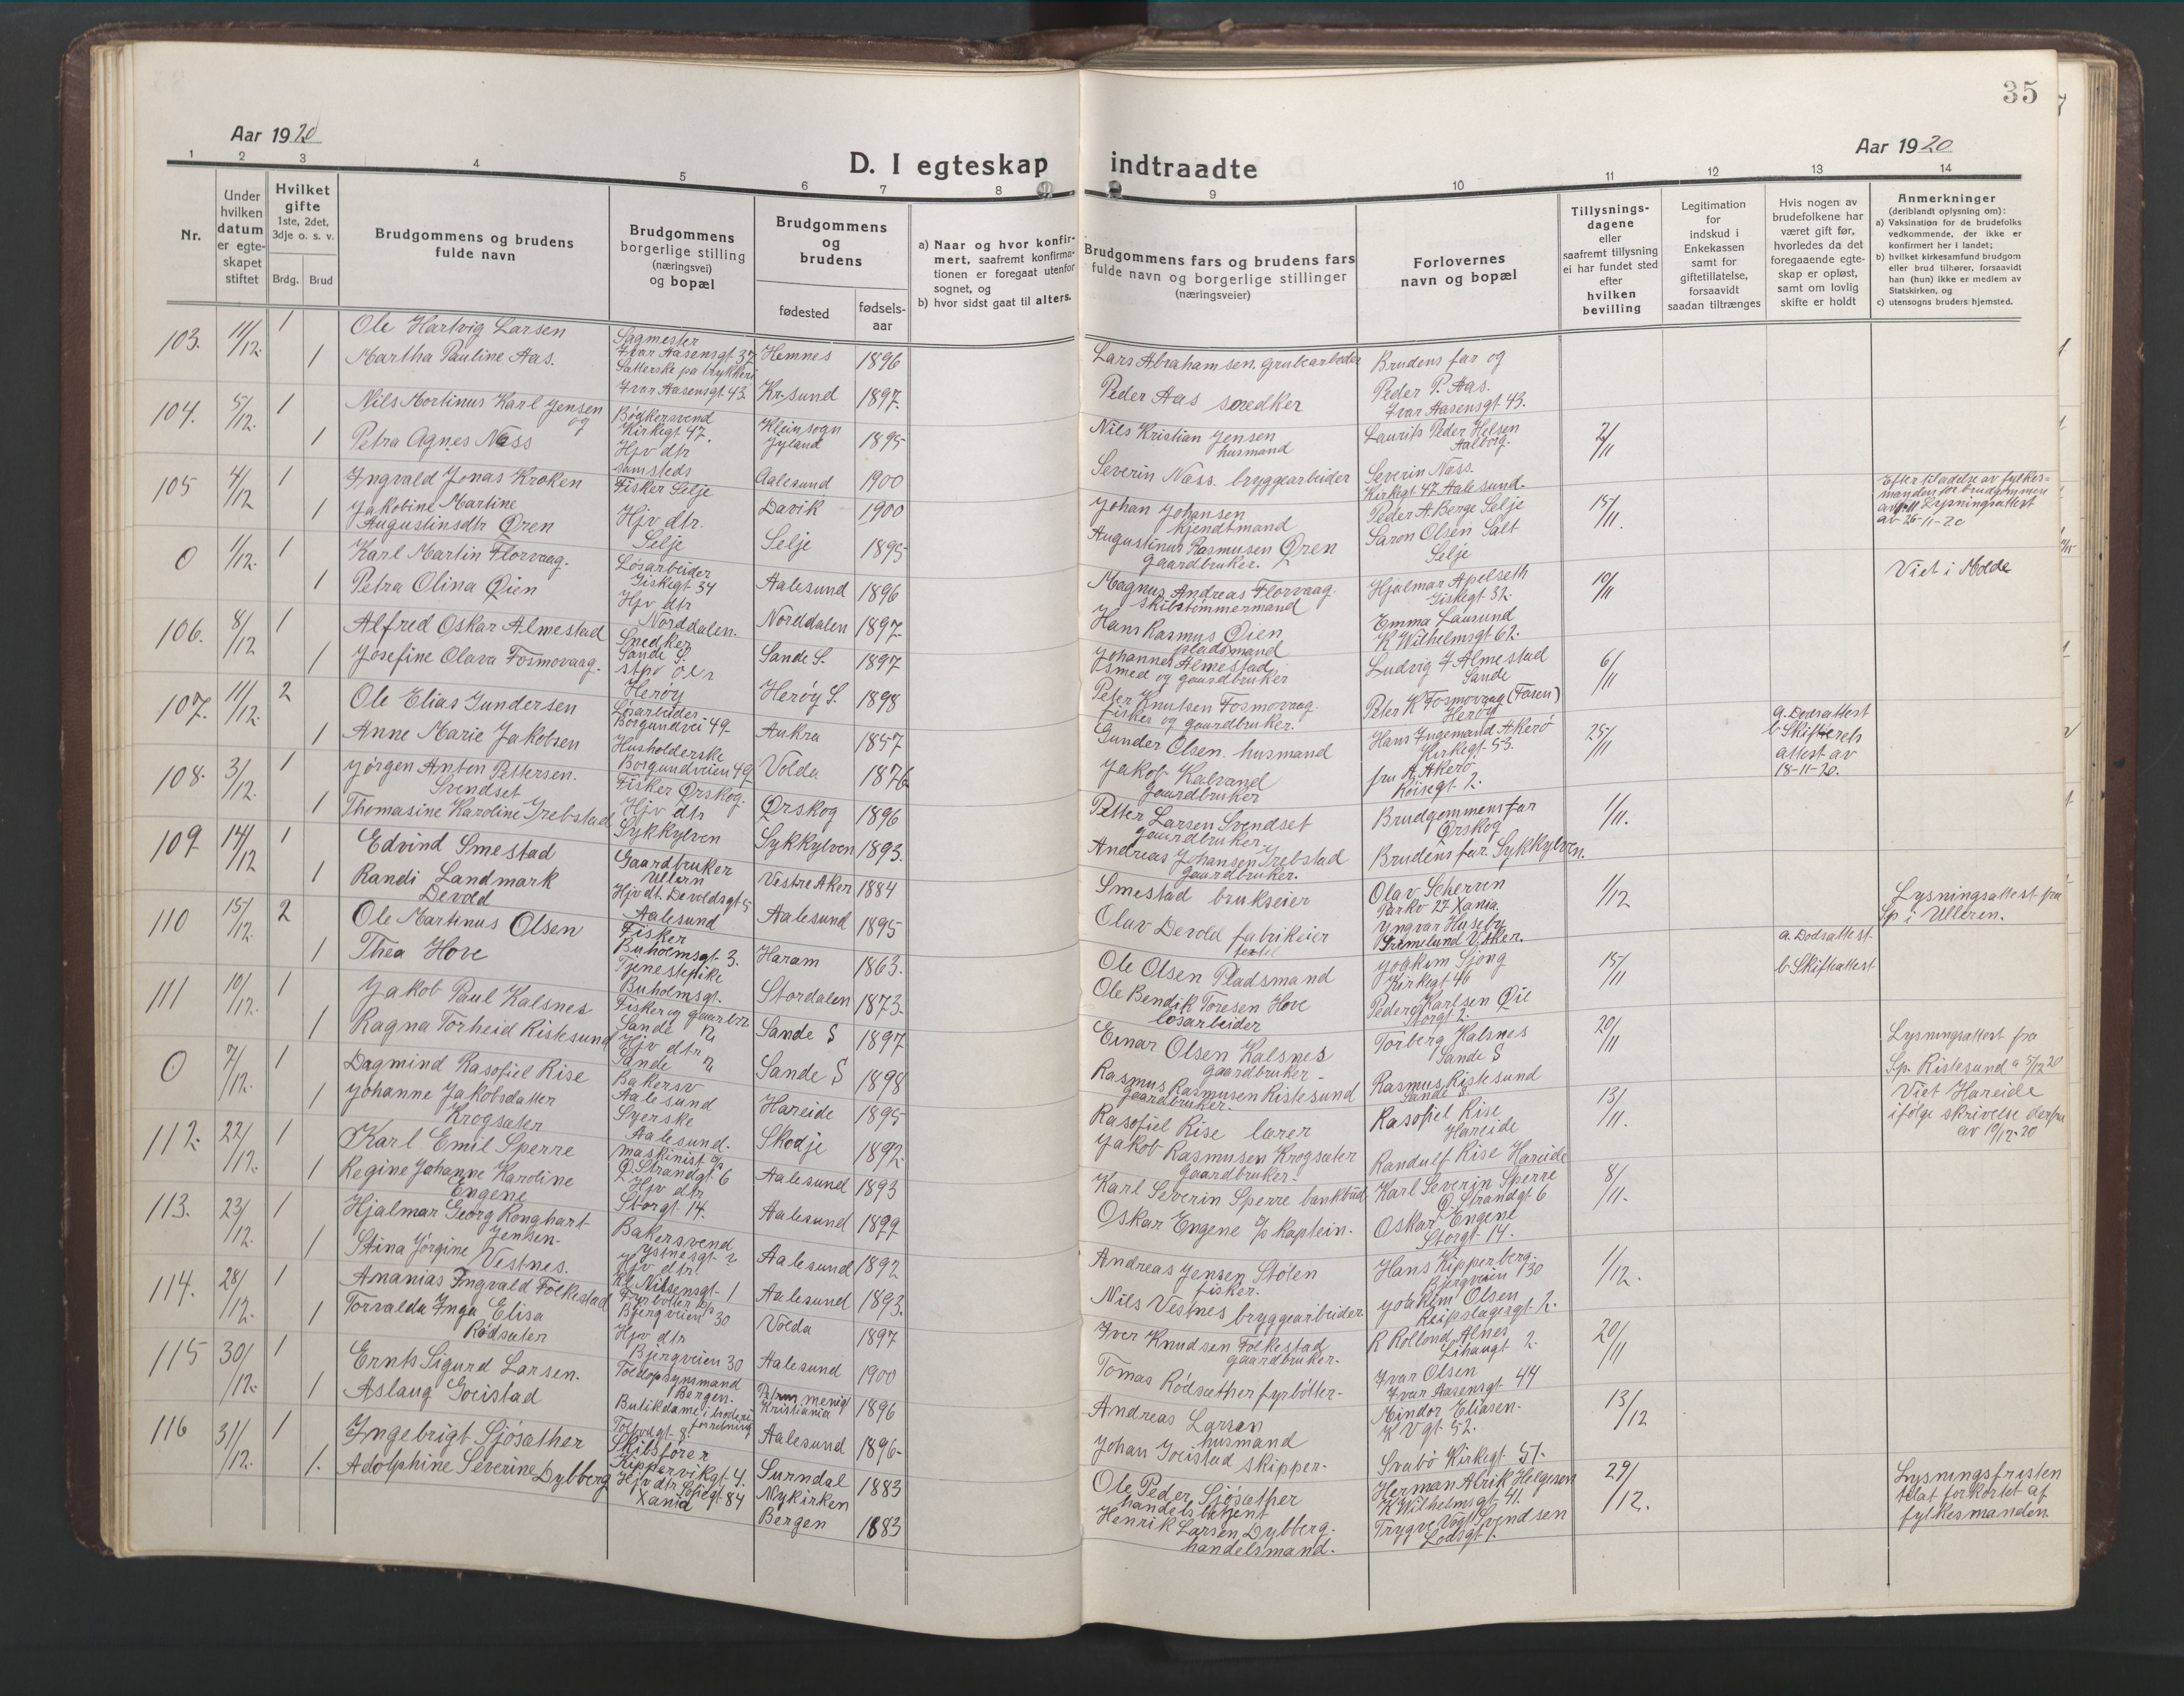 35
Aar 1920
D. I egteskap indtraadte
Aar 1920
1 2 3 4 5 6 7 8 9 10 11 12 13 14
Nr.
Under hvilken datum er egteskapet stiftet
Hvilket gifte 1ste, 2det, 3dje o. s. v.
Brdg. Brud
Brudgommens og brudens fulde navn
Brudgommens borgerlige stilling (næringsvei) og bopæl
Brudgommens og brudens
fødested
fødselsaar
a) Naar og hvor konfirmert, saafremt konfirmationen er foregaat utenfor sognet, og
b) hvor sidst gaat til alters.
Brudgommens fars og brudens fars fulde navn og borgerlige stillinger (næringsveier)
Forlovernes navn og bopæl
Tillysningsdagene eller saafremt tillysning ei har fundet sted efter hvilken bevilling
Legitimation for indskud i Enkekassen samt for giftetillatelse, forsaavidt saadan tiltrænges
Hvis nogen av brudefolkene har været gift før, hvorledes da det foregaaende egteskap er opløst, samt om lovlig skifte er holdt
Anmerkninger (deriblandt oplysning om):
a) Vaksination for de brudefolks vedkommende, der ikke er konfirmert her i landet;
b) hvilket kirkesamfund brudgom eller brud tilhører, forsaavidt han (hun) ikke er medlem av Statskirken, og
c) utensogns bruders hjemsted.
103. 11/12. 1 Ole Hartvig Larsen Sagmester Ivar Aasensgt. 37 Hemnes 1896 Lars Abrahamsen, grubearbeider Brudens far og
1 Martha Pauline Aas. Sætterske på trykkeri Ivar Aasensgt. 43 Kr.sund 1897. Peder Aas snedker Peder P. Aas. Ivar Aasensgt. 43.
104. 5/12. 1 Nils Mortinus Karl Jensen og Bødkersvend Kirkegt. 47. Jyland 1895 Nils Kristian Jensen husmand Laurits Peder Helsen Aalborg. 2/11
1 Petra Agnes Næss Hjv dtr samsteds Aalesund 1900 Severin Næss. bryggearbeider Severin Næss. Kirkegt. 47 Aalesund.
105 4/12 1 Ingvald Jonas Kroken Fisker Selje Davik 1900 Johan Johansen kjendtmand Peder A. Berge Selje 15/11. Efter tilladelse av fylkesmanden for brudgommen Lysningsattest av 26-11-20
1 Jakobine Martine Augustinsdtr Øren Hjv dtr. Selje Selje 1895 Augustinus Rasmusen Øren gaardbruker. Saron Olsen Salt Selje
0 1/12. 1 Karl Martin Florvaag. Løsarbeider Giskegt 34 Aalesund 1896 Magnus Andreas Florvaag. skibstømmermand Hjalmar Apelseth Giskegt. 32. 10/11 Viet i Molde
1 Petra Olina Øien Hjv dtr Norddalen. Norddalen 1897 Hans Rasmus Øien pladsmand Emma Lausund K Wilhelmsgt 62.
106. 8/12 1 Alfred Oskar Almestad Snedker Sande S. Sande S. 1897 Johannes Almestad smed og gaardbruker Ludvig J Almestad Sande 6/11
1 Josefine Olava Fosmovaag. Herøy Herøy S. 1898 Peter Knutsen Fosmovaag. Fisker og gaardbruker. Peter K Fosmovaag (Fosen) Herøy
107. 11/12. 2 Ole Elias Gundersen Løsarbeider Borgundvei 49 Aukra 1857 Gunder Olsen. husmand Hans Ingemand Akerø Kirkegt. 53. 25/11 a. Dødsattest b Skifterets attest av 18-11-20.
1 Anne Marie Jakobsen Husholderske Borgundveien 49 Volda 1876 Jakob Kalvand Gaardbruker fru A. Akerø Reisegt. 2.
108. 3/12. 1 Jørgen Anton Pettersen. Svendset Fisker Ørskog. Ørskog 1896 Petter Larsen Svendset gaardbruker. Brudgommens far Ørskog 1/11.
1 Thomasine Karoline Grebstad Hjv dtr Sykkylven Sykkylven 1893. Andreas Johansen Grebstad Gaardbruker. Brudens far. Sykkylven.
109 14/12 1 Edvind Smestad Gaardbruker Ullern Vestre Aker 1884 Smestad brukseier Olav Scherven Parkv 27 Xania. 1/12 Lysningsattest fra Sp i Ulleren.
1 Randi Landmark Devold Hjv dt. Devoldsgt 5 Aalesund Aalesund 1895 Olav Devold fabrikeier Yngvar Huseby V. Aker.
110 15/12. 2 Ole Martinus Olsen Fisker Buholmsgt. 3. Haram 1863. Ole Olsen Pladsmand Joakim Sjong Kirkegt 46 15/11 a. Dødsattest b Skifteattest
1 Thea Hove Tjenestepike Buholmsgt. Stordalen 1873. Ole Bendik Toresen Hove løsarbeider Peder Karlsen Øie Storgt 2.
111 10/12. 1 Jakob Paul Kalsnes Fisker og gaardbr. Sande Sande S 1897 Einar Olsen Kalsnes gaardbruker Torberg Kalsnes Sande S 20/11 Lysningsattest fra Sp. Ristesund a 5/12 20
1 Ragna Torheid Ristesund Hjv dtr Sande Sande S 1898 Rasmus Rasmusen Ristesund Gaardbruker. Rasmus Ristesund Sande S
0 7/12. 1 Dagmind Rasofiel Rise Bakersv Aalesund Hareide 1895 Rasofiel Rise lærer Rasofiel Rise Hareide 13/11. Viet Hareide ifølge skrivelse derfra av 19/12-20
1 Johanne Jakobsdatter Krogsæter Syerske Aalesund. Skodje 1892 Jakob Rasmusen Krogsæter Gaardbruker. Randulf Rise Hareide
112. 22/12. 1 Karl Emil Sperre maskinist Ø Strandgt 6 Aalesund 1893 Karl Severin Sperre bankbud Karl Severin Sperre Ø. Strandgt 6 8/11.
1 Regine Johanne Karoline Engene Hjv dtr Storgt. 14. Aalesund 1899 Oskar Engene kaptein. Oskar Engene Storgt. 14.
113. 23/12. 1 Hjalmar Georg Jensen. Bakersvend Aalesund 1892 Andreas Jensen Stølen fisker. Hans Kipperberg. Bjergveien 30 1/12.
1 Stina Jørgine Vestnes. Hjv dtr. Kl. Nilsensgt. 1 Aalesund 1893. Nils Vestnes bryggearbeider Joakim Olsen Reipslagergt. 2.
114. 28/12. 1 Ananias Ingvald Folkestad Fyrbøter Bjergveien 30 Volda 1897 Iver Knudsen Folkestad gaardbruker. R Rollond Alnes Lihaugt 2. 20/11
1 Torvalda Inga Elisa Rødsæter Hjv dtr Bjergveien 30 Aalesund 1900 Tomas Rødsæther fyrbøter Ivar Olsen Ivar Aasensgt 44
115 30/12. 1 Ernts Sigurd Larsen. Toldopsynsmand Bergen. Kristiania 1896 Andreas Larsen husmand Mindor Eliasen. K V gt. 52. 13/12
1 Aslaug Goeistad Butikdame i broderiforretning Tolbodgt 8. Aalesund 1896 Johan Goeistad skipper. Svabø Kirkegt 51.
116 31/12. 1 Ingebrigt Sjøsæther Skibsfører Kippervikgt. 4. Surndal 1883 Ole Peder Sjøsæther handelsbetjent Herman Alrik Helgesen K Wilhelmsgt. 41. 29/12. Lysningsfristen tillat forkortet af fylkesmanden.
1. Adolphine Severine Dybberg Hjv dtr 84 Xania Nykirken Bergen 1883 Henrik Larsen Dybberg. handelsmand. Trygve Vogt Svendsen Lodsgt 1.